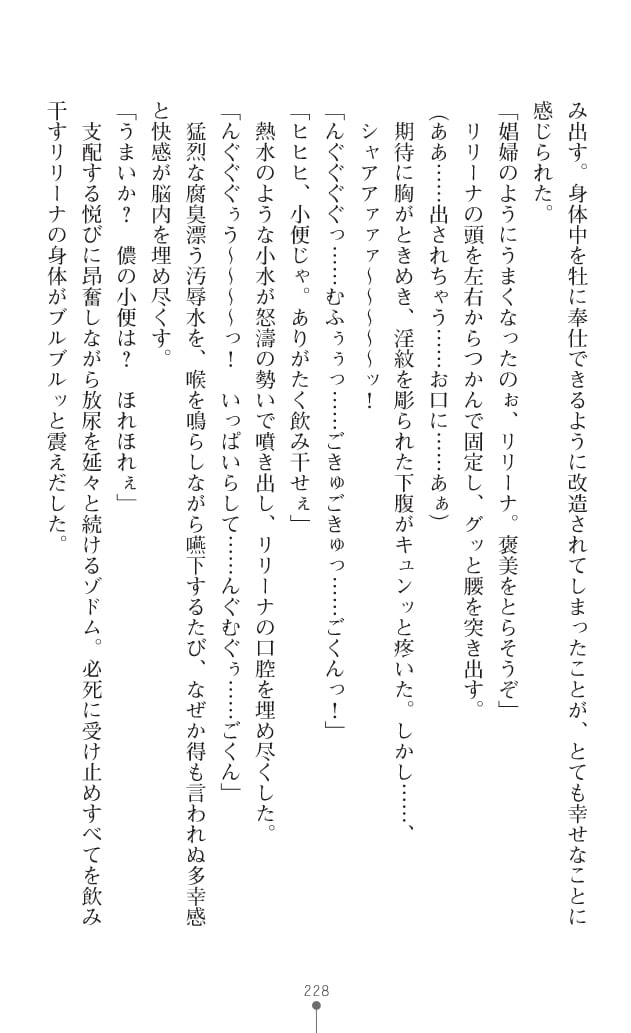 み出す。身体中を牡に奉仕できるように改造されてしまったことが、とても幸せなことに
感じられた。
「娼婦のようにうまくなったのぉ、リリーナ。褒美をとらそうぞ」
リリーナの頭を左右からつかんで固定し、グッと腰を突き出す。
(ああ……出されちゃう……お口に……あぁ)
期待に胸がときめき、淫紋を彫られた下腹がキュンッと疼いた。しかし……、
シャアアァァァ〜〜〜〜〜ッ！
「んぐぐぐぐっ……むふぅぅっ……ごきゅごきゅっ……ごくんっ！」
「ヒヒヒ、小便じゃ。ありがたく飲み干せぇ」
熱水のような小水が怒濤の勢いで噴き出し、リリーナの口腔を埋め尽くした。
「んぐぐぐぅう〜〜〜〜っ！　いっぱいらして……んぐむぐぅ……ごくん」
猛烈な腐臭漂う汚辱水を、喉を鳴らしながら嚥下するたび、なぜか得も言われぬ多幸感
と快感が脳内を埋め尽くす。
「うまいか？　儂の小便は？　ほれほれぇ」
支配する悦びに昂奮しながら放尿を延々と続けるゾドム。必死に受け止めすべてを飲み
干すリリーナの身体がブルブルッと震えだした。
228